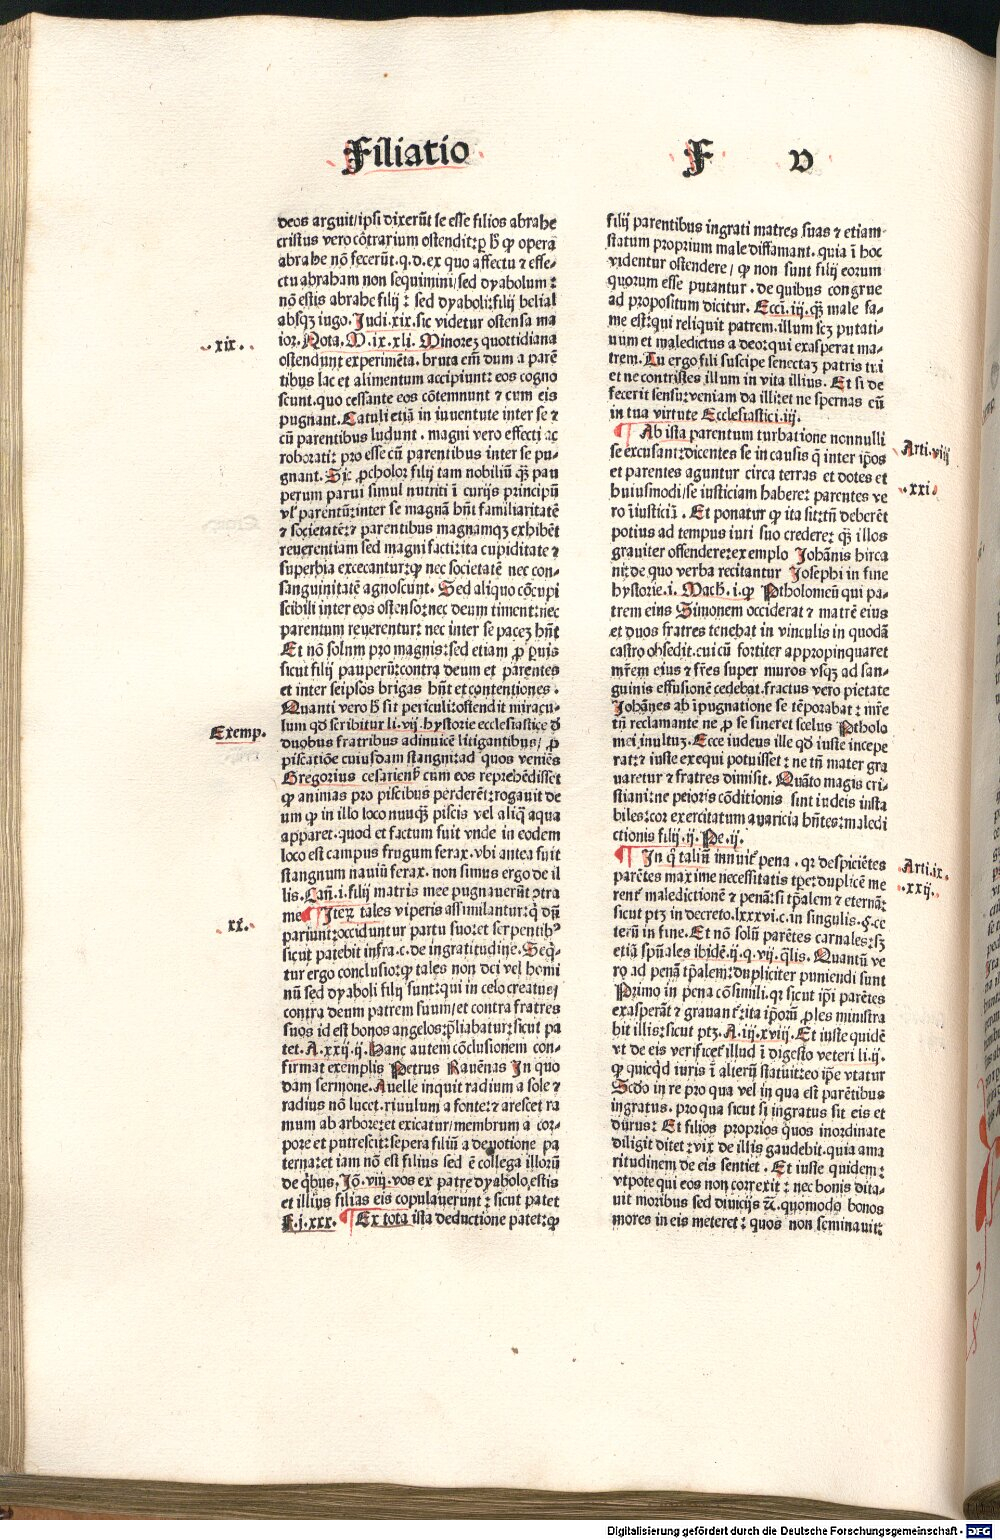 Filiatio
F v
deos arguit/ipsi dixerũt se esse filios abrahe
cristus vero cõtrarium ostendit: p̱ h̃ ꝙ opera
abrahe nõ fecerũt.q.d.ex quo affectu ⁊ effe-
ctu abraham non sequimini/sed dyabolum:
nõ estis abrahe filij: sed dyaboli:filij belial
absqꝫ iugo. Judi.xix.sic videtur ostensa ma
ior. Nota. M.ix.xli. Minoreꝫ quottidiana
ostendunt experimẽta. bruta em̃ dum a parẽ
tibus lac et alimentum accipiunt: eos cogno
scunt.quo cessante eos cõtemnunt ⁊ cum eis
pugnant. Catuli etiã in iuuentute inter se ⁊
cũ parentibus ludunt. magni vero effecti ac
roborati: pro esse cũ parentibus inter se pu-
gnant. Sic ꝓcholor filij tam nobiliũ qꝫ pau
perum parui simul nutriti ĩ curijs principũ
vł parentũ:inter se magnã hñt familiaritatẽ
⁊ societatẽ:⁊ parentibus magnamqꝫ exhibẽt
reuerentiam sed magni facti:ita cupiditate ⁊
superbia excecantur:ꝙ nec societatẽ nec con-
sanguinitatẽ agnoscunt. Sed aliquo cõcupi
scibili inter eos ostenso:nec deum timent:nec
parentum reuerentur: nec inter se paceꝫ hñt
Et nõ solum pro magnis:sed etiam ꝓ ꝑuis
sicut filij pauperũ:contra deum et parentes
et inter seipsos brigas hñt et contentiones.
Quanti vero h̃ sit periculi:ostendit miracu-
lum qd̃ scribitur li.vij.hystorie ecclesiastice d̃
duobus fratribus adinuicẽ litigantibus/ ꝓ
piscatiõe cuiusdam stangni:ad quos veniẽs
Gregorius cesarienẽ cum eos reprehẽdisset
ꝙ animas pro piscibus perderẽt:rogauit de
um ꝙ in illo loco nunqꝫ piscis vel aliq̃ aqua
apparet.quod et factum fuit vnde in eodem
loco est campus frugum ferax.vbi antea fuit
stangnum nauiũ ferax. non simus ergo de il
lis. Cañ.i.filij matris mee pugnauerũt ↄtra
me ¶ Iteꝝ tales viperis assimilantur:q̃ dũ
pariunt:occiduntur partu suo:et serpentibꝰ
sicut patebit infra.c.de ingratitudine. Seq̃-
tur ergo conclusio:ꝙ tales non dei vel homi
nũ sed dyaboli filij sunt:qui in celo creatus/
contra deum patrem suum/et contra fratres
suos id est bonos angelos:p̃liabatur:sicut pa
tet. A.xxij.ij. Hanc autem cõclusionem con-
firmat exemplis Petrus Rauẽnas In quo
dam sermone. Auelle inquit radium a sole ⁊
radius nõ lucet.riuulum a fonte:⁊ arescet ra
mum ab arbore:et exicatur/membrum a cor-
pore et putrescit:sepera filiũ a deuotione pa
terna:et iam nõ est filius sed ẽ collega illorũ
de q̃bus, Jõ.viij.vos ex patre dyabolo.estis
et illius filias eis copulauerunt: sicut patet
F.j.xxx. ¶ Ex tota ista deductione patet:ꝙ
xix.
Exemp.
xx.
filij parentibus ingrati matres suas ⁊ etiam
statum proprium male diffamant. quia ĩ hoc
videntur ostendere/ ꝙ non sunt filij eorum
quorum esse putantur. de quibus congrue
ad propositum dicitur. Ecci.iij.qꝫ male fa-
me est:qui reliquit patrem.illum scꝫ putati-
uum et maledictus a deo:qui exasperat ma-
trem. Tu ergo fili suscipe senectaꝫ patris tui
et ne contristes illum in vita illius. Et si de
fecerit sensu:veniam da illi:et ne spernas cũ
in tua virtute Ecclesiastici.iij.
¶ Ab ista parentum turbatione nonnulli
se excusant:dicentes se in causis q̃ inter ip̃os
et parentes aguntur circa terras et dotes et
huiusmodi/se iusticiam habere: parentes ve
ro ĩiusticiã. Et ponatur ꝙ ita sit:tñ deberẽt
potius ad tempus iuri suo credere: qꝫ illos
grauiter offendere:exemplo Johãnis hirca
ni:de quo verba recitantur Josephi in fine
hystorie.i. Mach̃.i.ꝙ Ptholomeũ qui pa-
trem eius Simonem occiderat ⁊ matrẽ eius
et duos fratres tenebat in vinculis in quodã
castro obsedit.cui cũ fortiter appropinquaret
mr̃em eius ⁊ fr̃es super muros vsqꝫ ad san-
guinis effusionẽ cedebat.fractus vero pietate
Johãnes ab ĩpugnatione se tẽporabat: mr̃e
tñ reclamante ne ꝓ se sineret scelus Ptholo
mei inultuꝫ. Ecce iudeus ille qd̃ iuste incepe
rat:⁊ iuste exequi potuisset: ne tñ mater gra
uaretur ⁊ fratres dimisit. Quãto magis cri-
stiani:ne peioris cõditionis sint iudeis insta
biles:cor exercitatum auaricia hñtes:maledi
ctionis filij.ij. Pe.ij.
¶ In q̃ taliũ innuit᷑ pena. qꝛ despiciẽtes
parẽtes maxime necessitatis tp̃e:duplicẽ me
rent᷑ maledictionẽ ⁊ penã:sꝫ tp̃alem ⁊ eternã:
sicut ptꝫ in decreto.lxxxvi.c.in singulis.§.ce
terũ in fine. Et nõ solũ parẽtes carnales:sꝫ
etiã sp̃uales ibidẽ.ij.q.vij.q̃lis. Quantũ ve
ro ad penã tp̃alem:dupliciter puniendi sunt
Primo in pena cõsimili.qꝛ sicut ip̃i parẽtes
exasperãt ⁊ grauant᷑:ita ip̃orũ ꝓles ministra
bit illis:sicut ptꝫ. A.iij.xviij. Et iuste quidẽ
vt de eis verificet᷑ illud ĩ digesto veteri li.ij.
ꝙ quicqd̃ iuris ĩ alterũ statuit:eo ip̃e vtatur
Scd̃o in re pro qua vel in qua est parẽtibus
ingratus. pro qua sicut si ingratus sit eis et
durus: Et filios proprios quos inordinate
diligit ditet: vix de illis gaudebit.quia ama
ritudinem de eis sentiet. Et iuste quidem:
vtpote qui eos non correxit: nec bonis dita-
uit moribus sed diuicijs ⁊c̃.quomodo bonos
mores in eis meteret: quos non seminauit:
Arti.viij
xxi.
Arti.ix.
xxij.
Digitalisierung gefördert durch die Deutsche Forschungsgemeinschaft - DFG